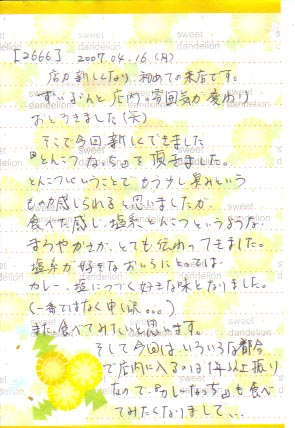 [2666] 2007.04.16(月)
店が新しくなり、初めての来店です。
ずいぶんと店内の雰囲気が変わり
おどろきました(笑)
そこで今回新しくできました
『とんこつなっち』を頂きました。
とんこつということでもう少し臭みという
ものが感じられると思いましたが、
食べた感じ、塩系とんこつというような
まろやかさが、とても伝わってきました。
塩系が好きなおいらにとっては
カレー、塩につづく好きな味となりました。
(一番ではなく申し訳。。。)
また食べてみたいと思います。
そして今回はいろいろな都合
で店内に入るのは1年以上振り
なので、『カレーなっち』も食べ
てみたくなりまして、、
sweet
dandelion